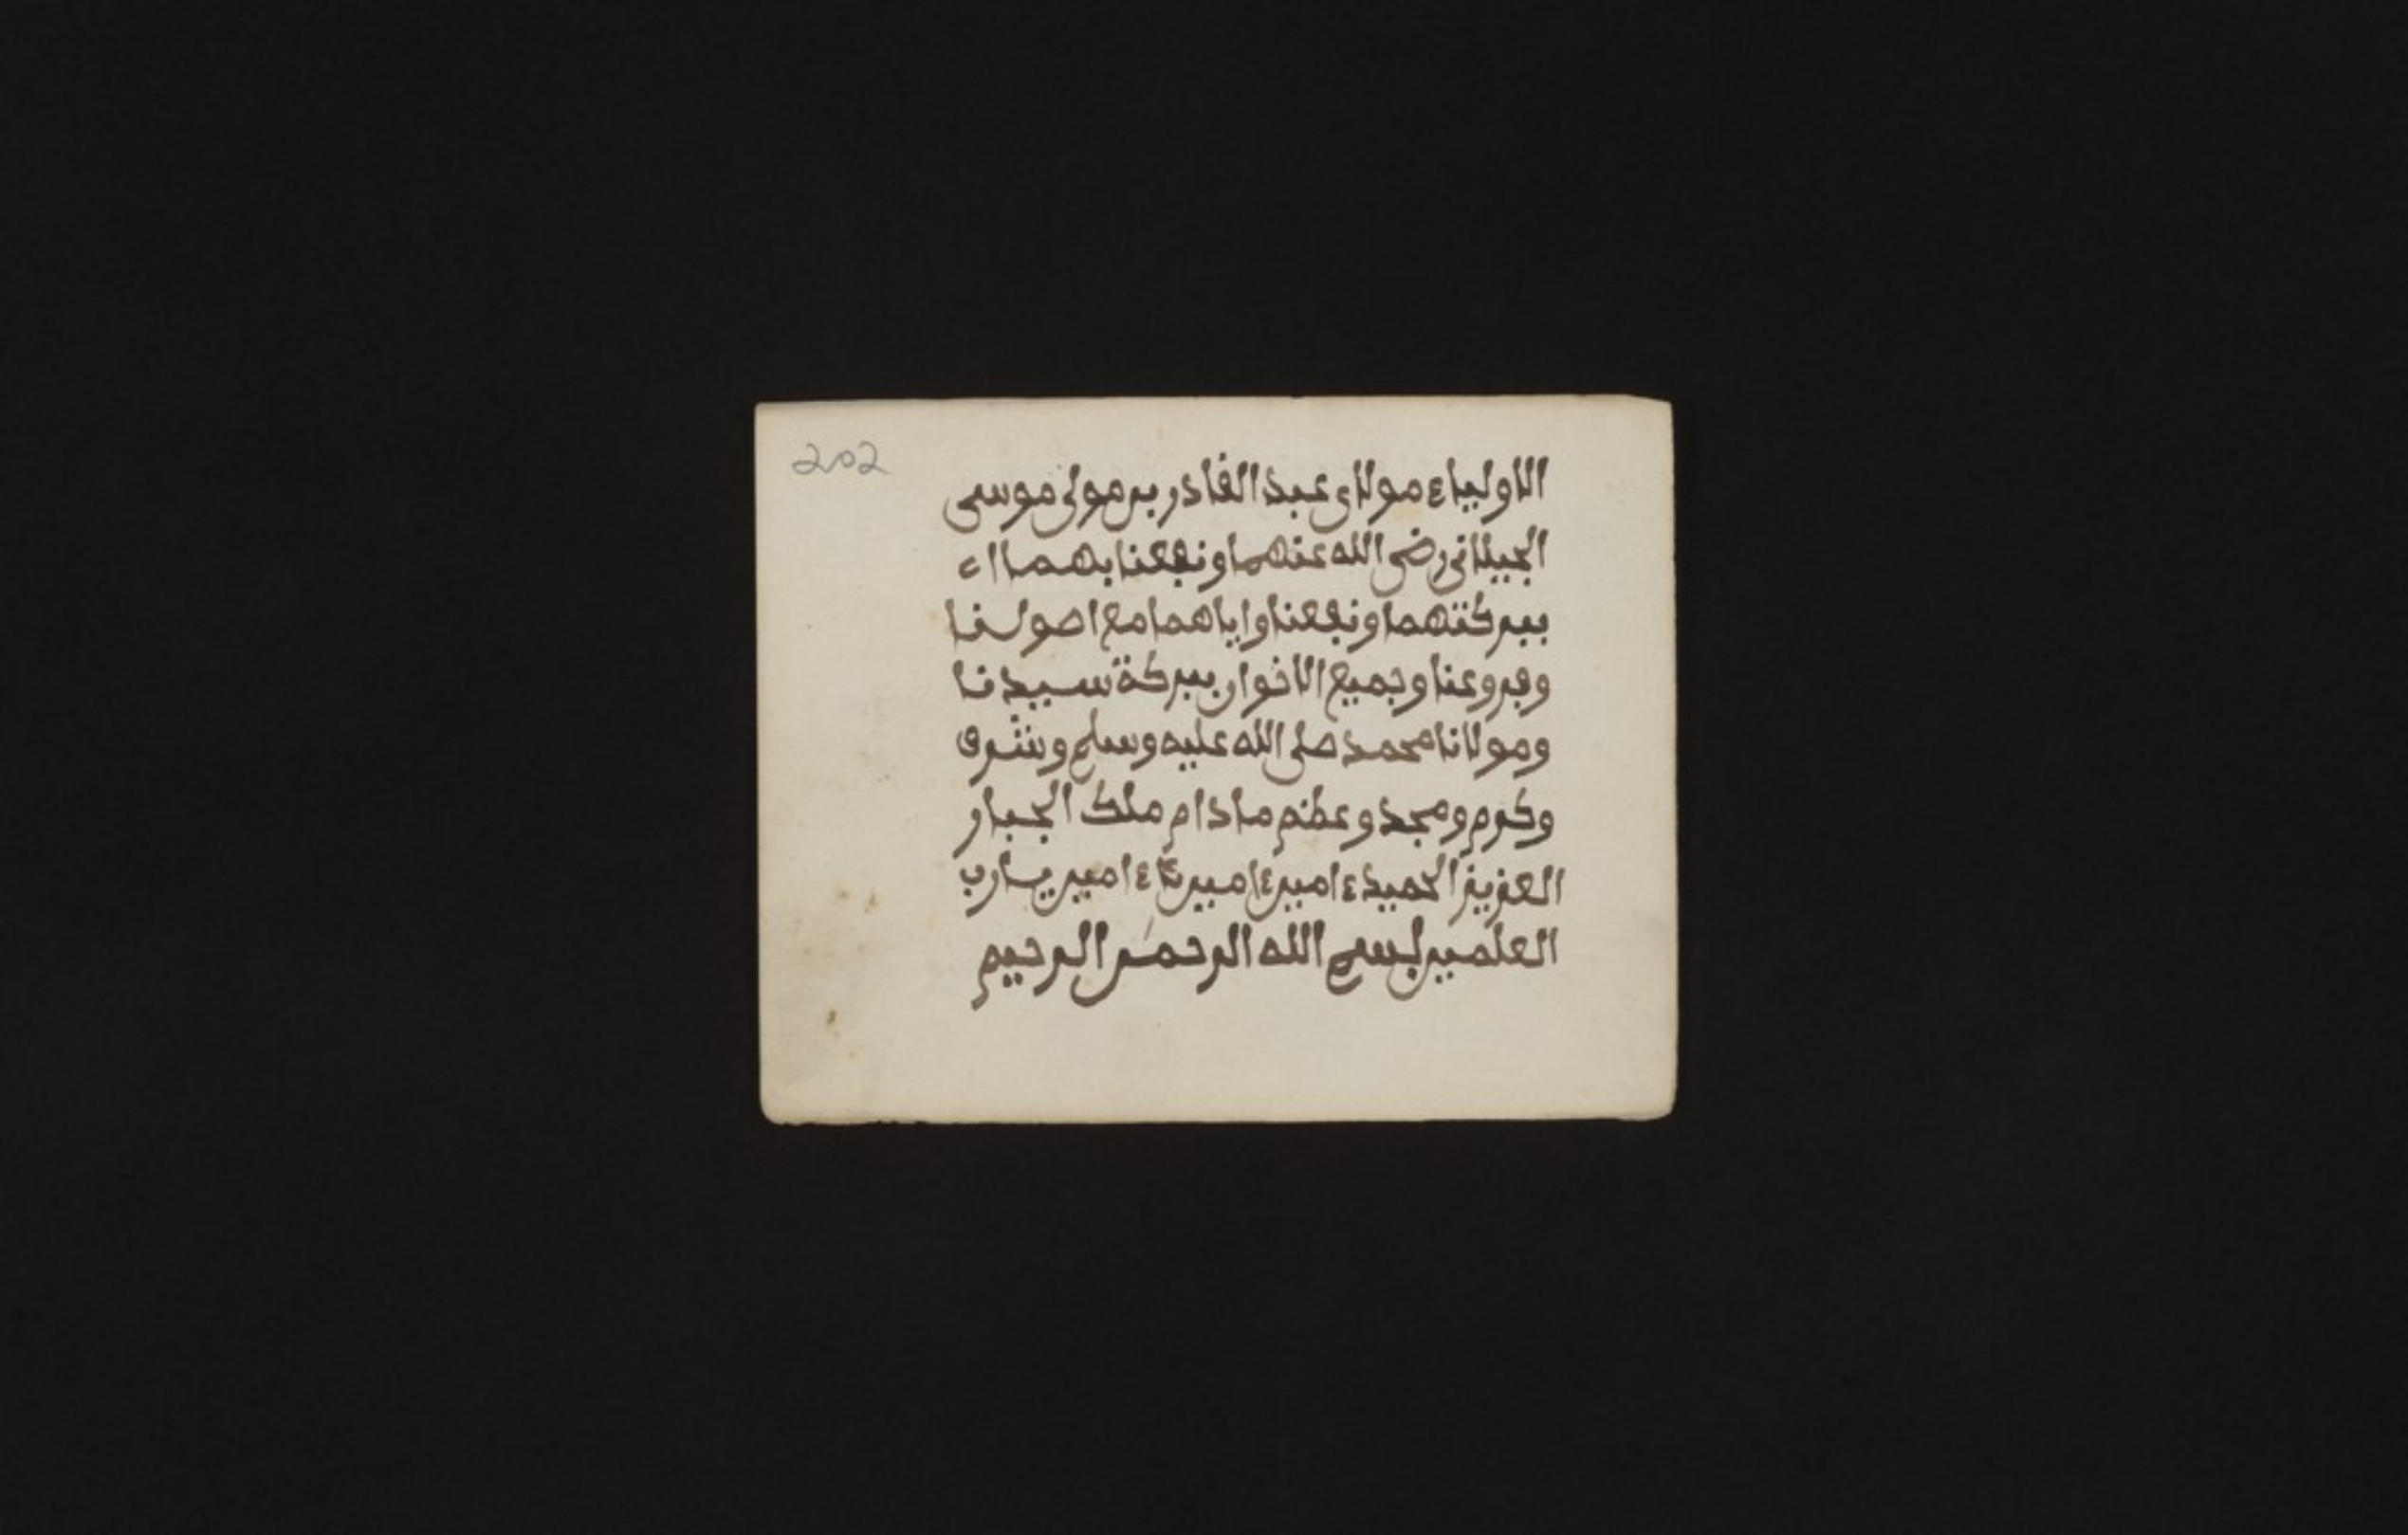 202
الاولياء مولاى عبد القادر بن مولى موسى
الجيلانى رضى الله عنهما ونفعنا بهما اا
ببركتهما ونفعنا واياهما مع اصولنا
وفروعنا وجميع الاخوان ببركة سيدنا
ومولانا محمد صلى الله عليه وسلم وشرف
وكرم ومجد وعظم ما دام ملك الجبار
العزيز الحميد ءامين ءامين ءامين يارب
العلمين بسم الله الرحمن الرحيم